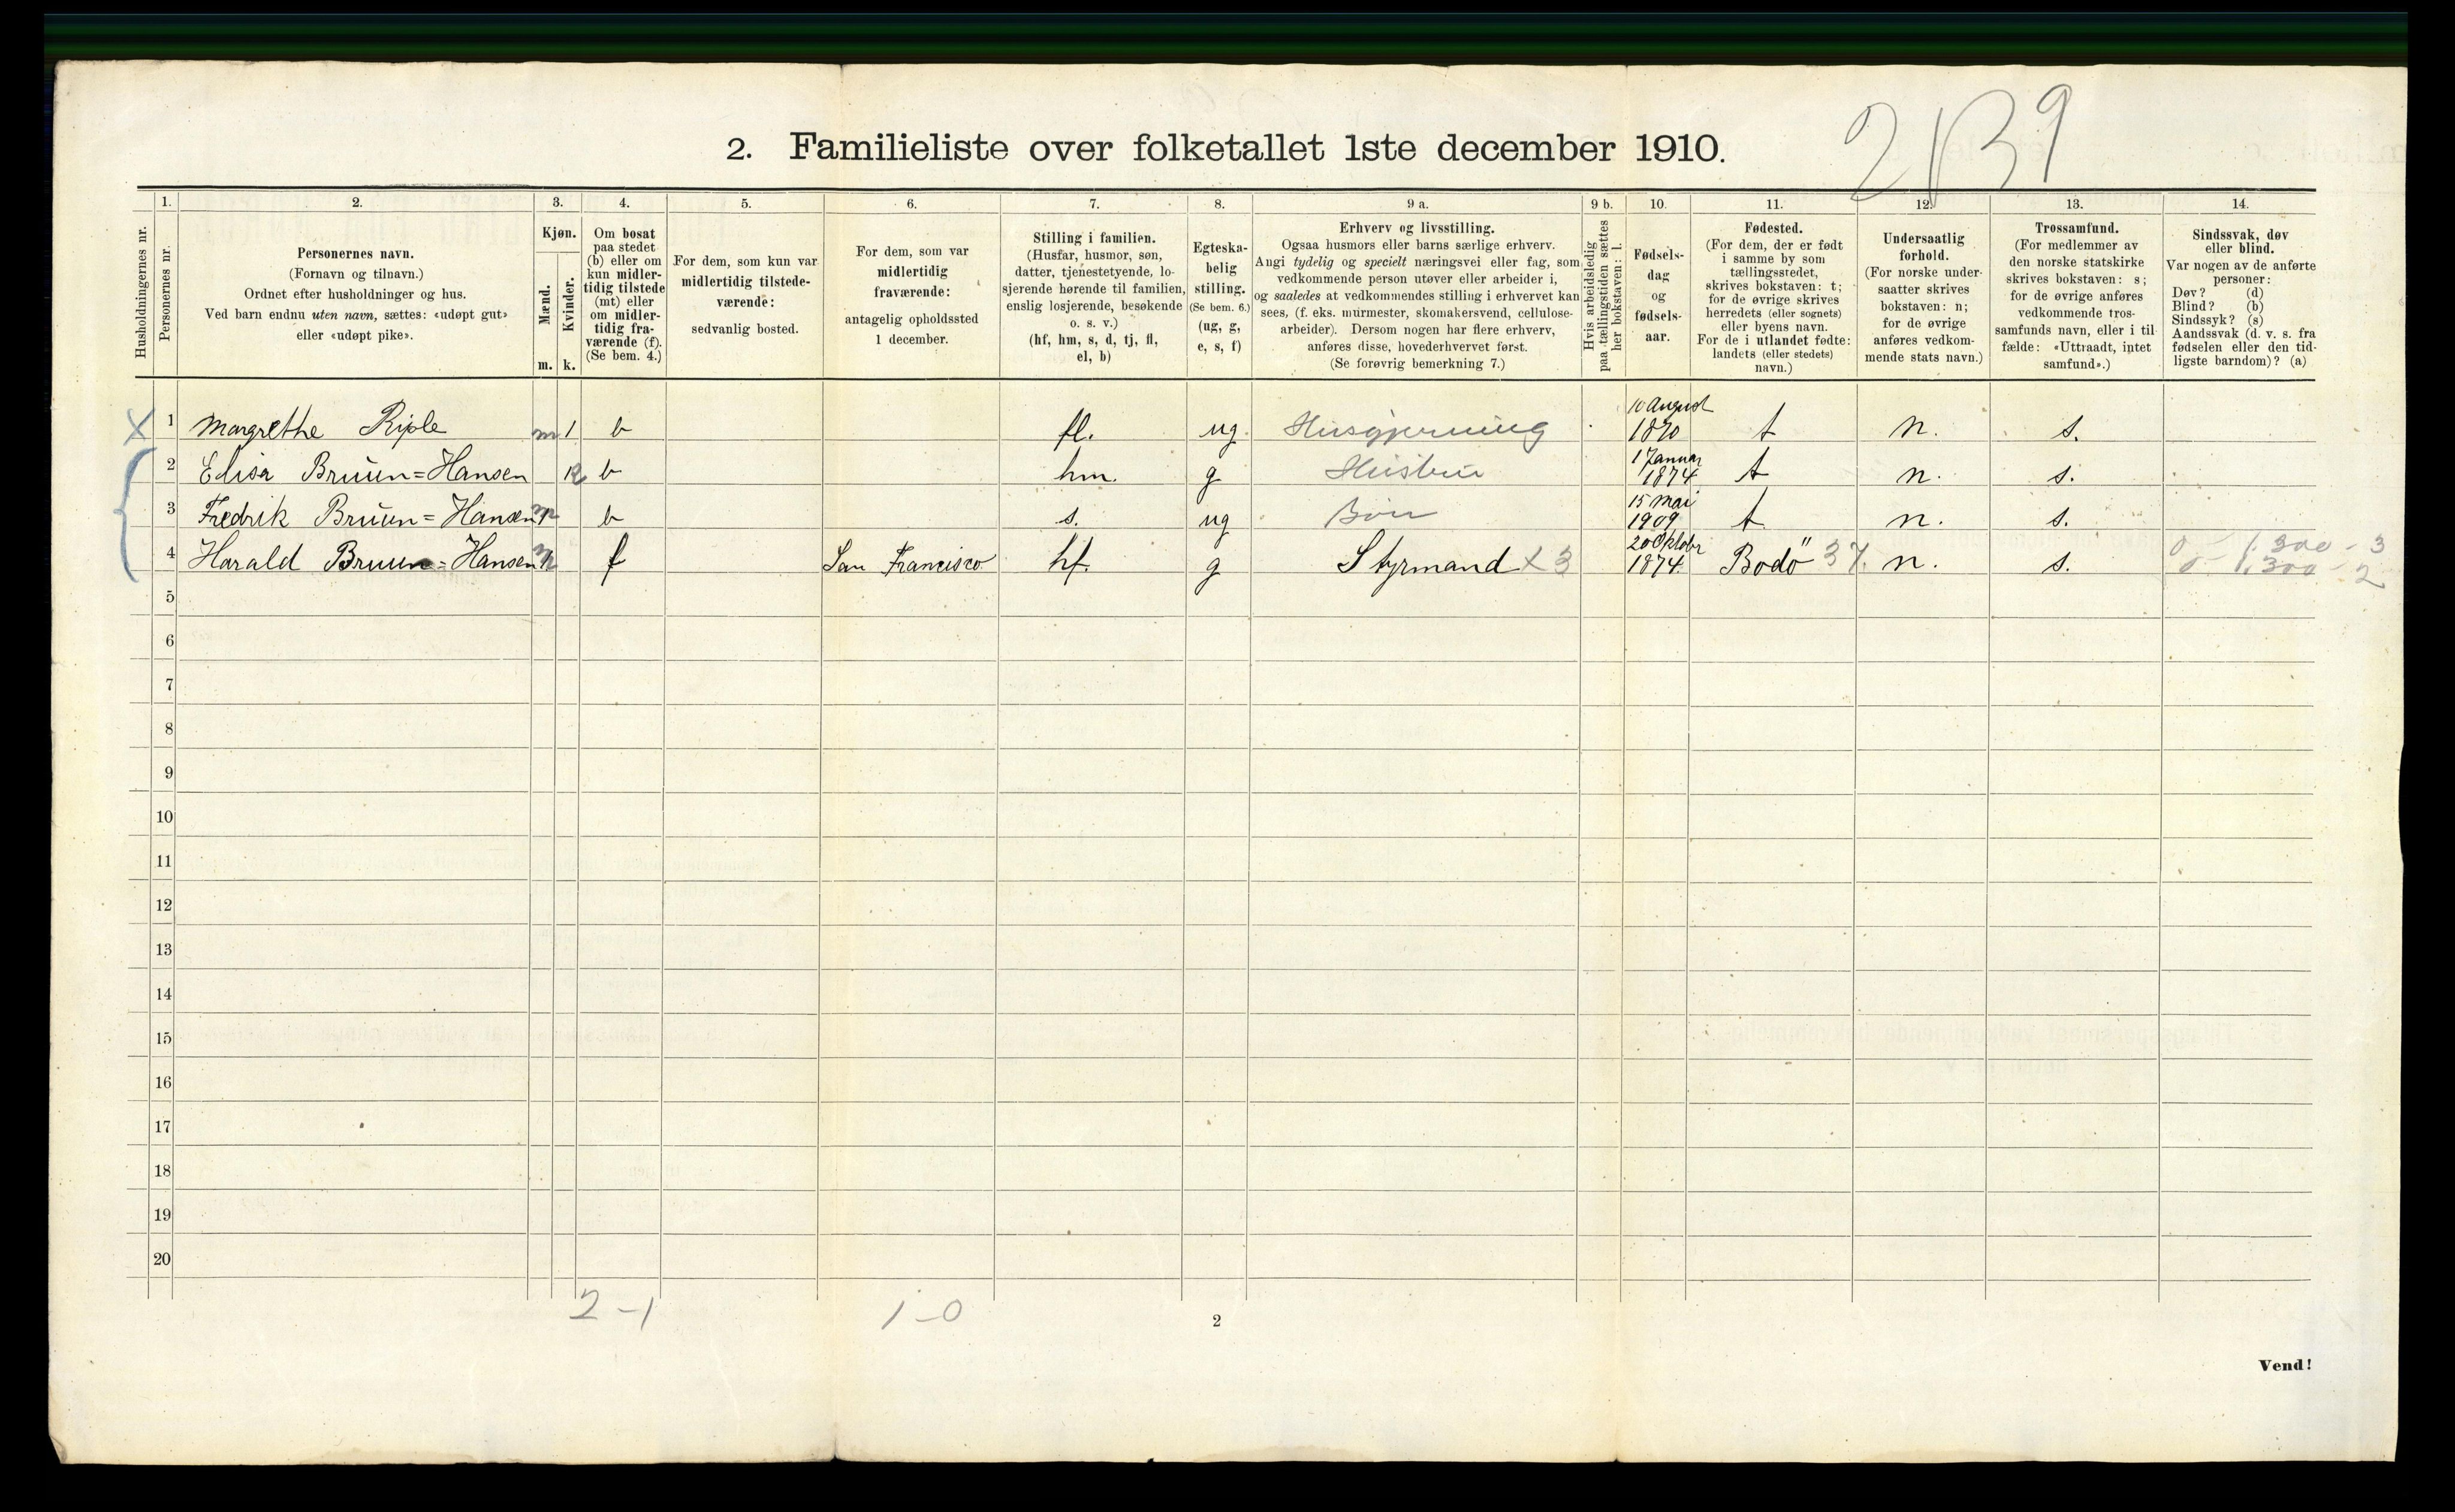 2. Familieliste over folketallet 1ste december 1910.
2139
Husholdningernes nr.
1.
Personernes nr.
2.
Personernes navn.
(Fornavn og tilnavn.)
Ordnet efter husholdninger og hus.
Ved barn endnu uten navn, sættes: «udøpt gut»
eller «udøpt pike».
3.
Kjøn.
Mænd.
Kvinder.
m. k.
4.
Om bosat
paa stedet
(b) eller om
kun midler-
tidig tilstede
(mt) eller
om midler-
tidig fra-
værende (f).
(Se bem. 4.)
5.
For dem, som kun var
midlertidig tilstede-
værende:
sedvanlig bosted.
6.
For dem, som var
midlertidig
fraværende:
antagelig opholdssted
1 december.
7.
Stilling i familien.
(Husfar, husmor, søn,
datter, tjenestetyende, lo-
sjerende hørende til familien,
enslig losjerende, besøkende
o. s. v.)
(hf, hm, s, d, tj, fl,
el, b)
8.
Egteska-
belig
stilling.
(Se bem. 6.)
(ug, g,
e, s, f)
9 a.
Erhverv og livsstilling.
Ogsaa husmors eller barns særlige erhverv.
Angi tydelig og specielt næringsvei eller fag, som
vedkommende person utøver eller arbeider i,
og saaledes at vedkommendes stilling i erhvervet kan
sees, (f. eks. murmester, skomakersvend, cellulose-
arbeider). Dersom nogen har flere erhverv,
anføres disse, hovederhvervet først.
(Se forøvrig bemerkning 7.)
9 b.
Hvis arbeidsledig
paa tællingstiden sættes
her bokstaven: l.
10.
Fødsels-
dag
og
fødsels-
aar.
11.
Fødested.
(For dem, der er født
i samme by som
tællingsstedet,
skrives bokstaven: t;
for de øvrige skrives
herredets (eller sognets)
eller byens navn.
For de i utlandet fødte:
landets (eller stedets)
navn.)
12.
Undersaatlig
forhold.
(For norske under-
saatter skrives
bokstaven: n;
for de øvrige
anføres vedkom-
mende stats navn.)
13.
Trossamfund.
(For medlemmer av
den norske statskirke
skrives bokstaven: s;
for de øvrige anføres
vedkommende tros-
samfunds navn, eller i til-
fælde: «Uttraadt, intet
samfund».)
14.
Sindssvak, døv
eller blind.
Var nogen av de anførte
personer:
Døv? (d)
Blind? (b)
Sindssyk? (s)
Aandssvak (d. v. s. fra
fødselen eller den tid-
ligste barndom)? (a)
X 1 Margrethe Riple m 1 b fl. ug. Husgjerning 10 August 1870 t n. s.
2 Elisa Bruun=Hansen b hm. g Hustru 1 Januar 1874 t n. s.
3 Fredrik Bruun=Hansen b s. ug Barn 15 mai 1909 t n. s.
4 Harald Bruun=Hansen f San Francisco hf. g Styrmand X 3 20 Oktobr 1874 Bodö 37. n. s. 0 - 1.300 - 3
0 - 1.300 - 2
5
6
7
8
9
10
11
12
13
14
15
16
17
18
19
20
2 - 1
1 - 0
2
Vend!